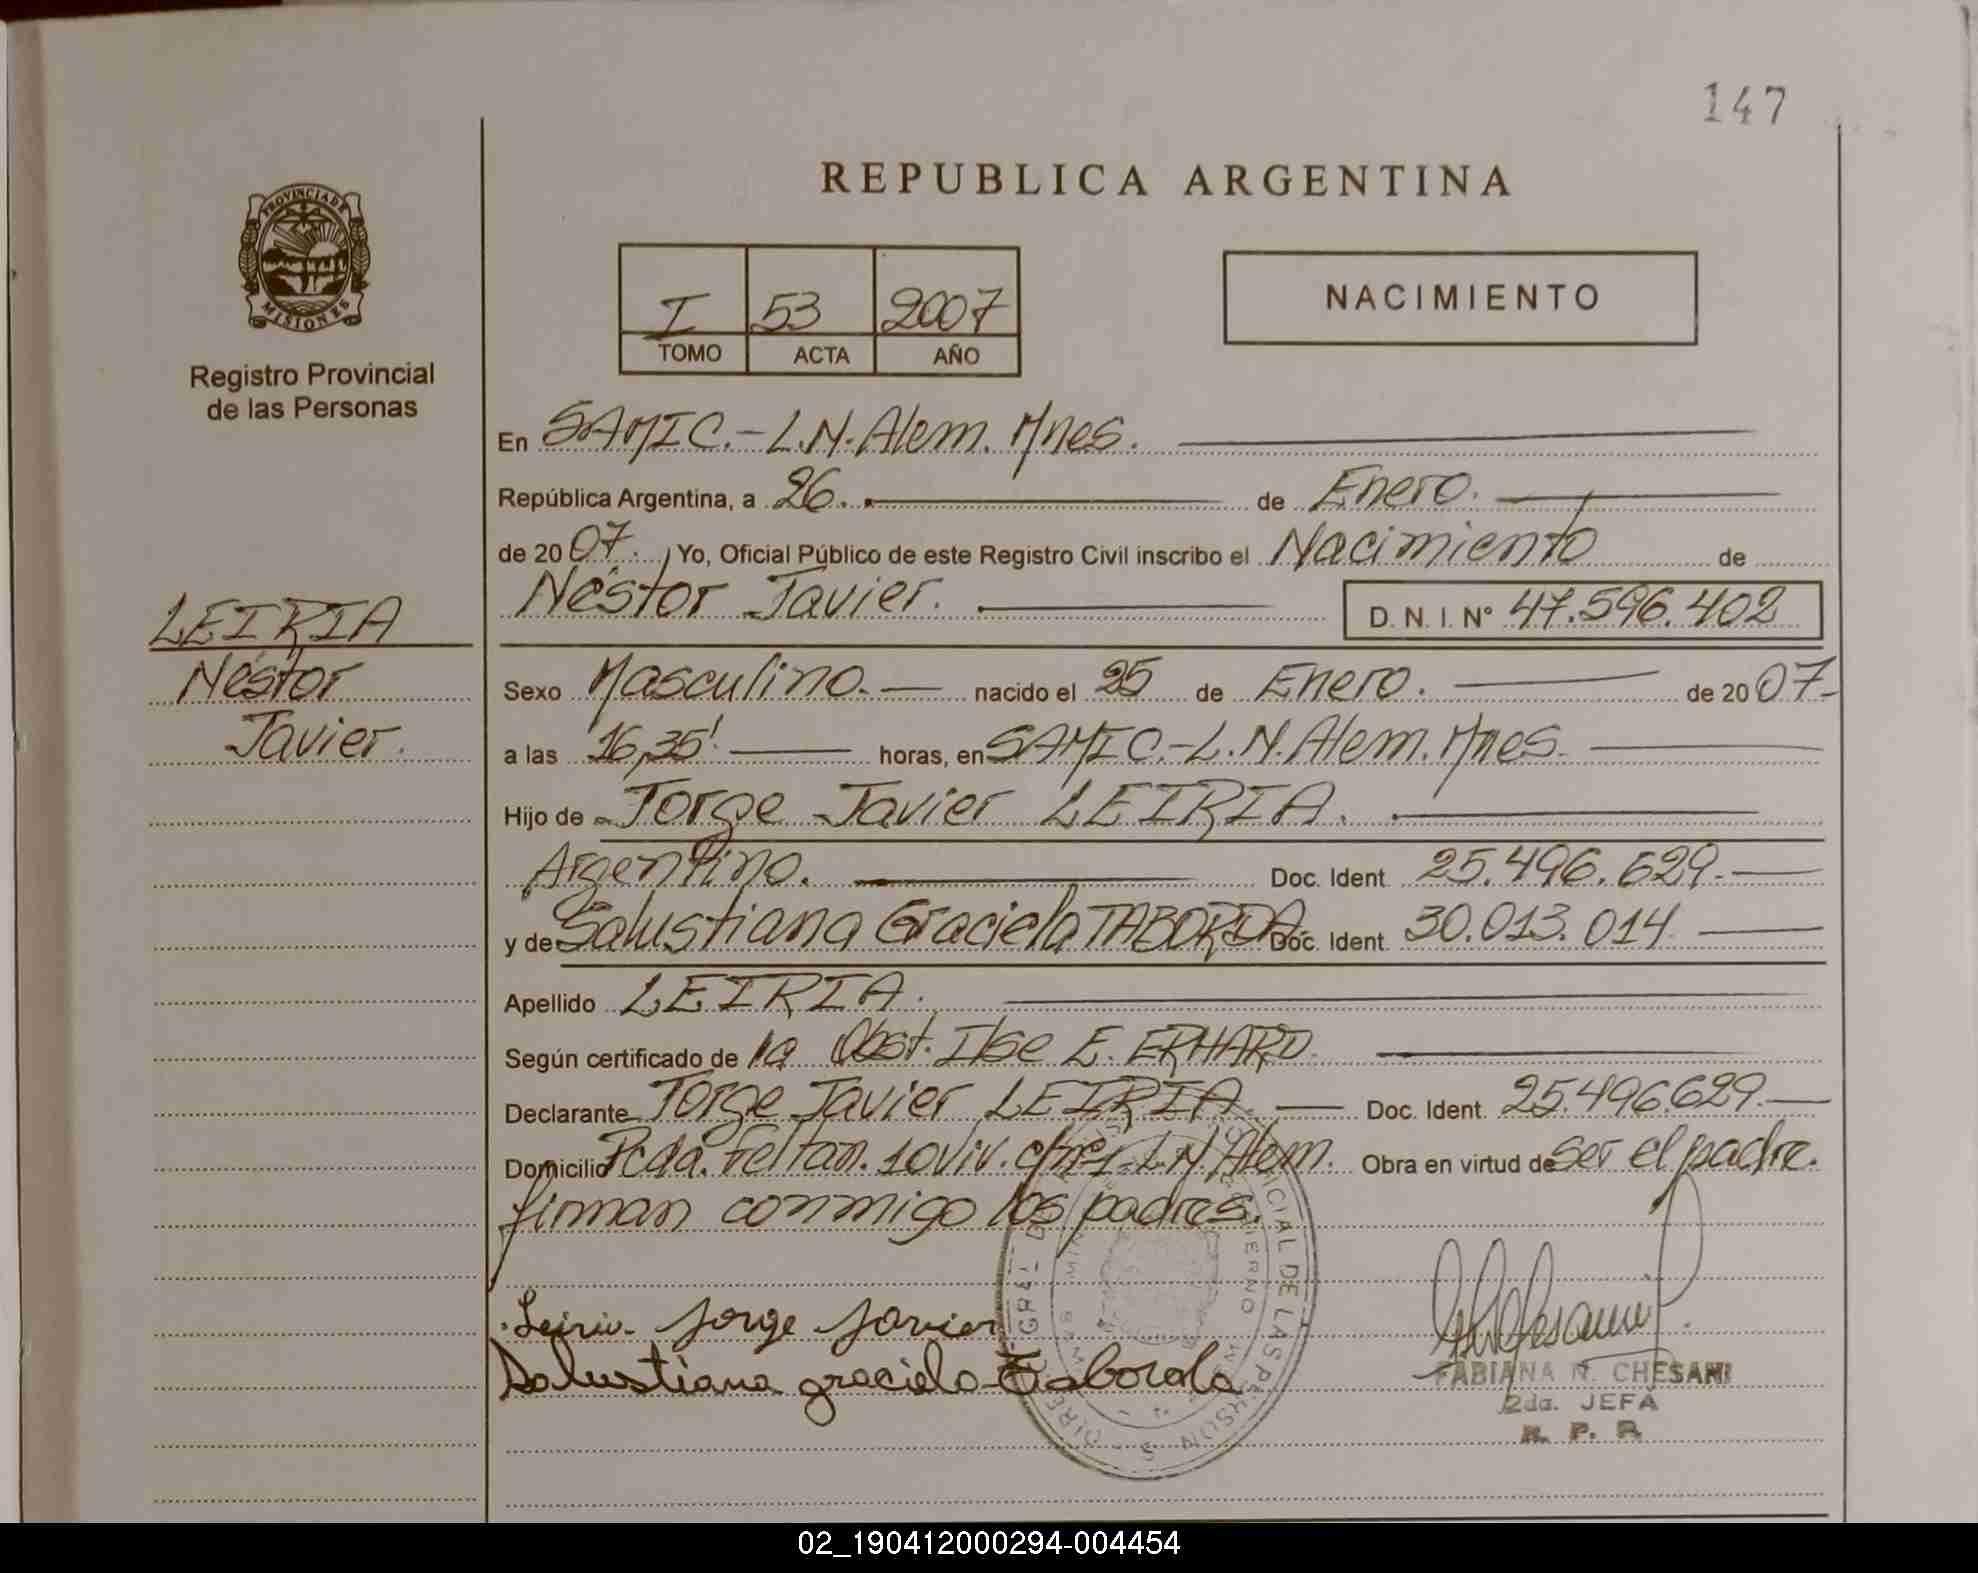 147
REPUBLICA ARGENTINA
PROVINCIA DE
MISIONES
Registro Provincial
de las Personas
I 53 2007
TOMO ACTA AÑO
NACIMIENTO
En SAMIC.-L.N.Alem.Mnes.
República Argentina, a 26. de Enero.
de 2007. Yo, Oficial Público de este Registro Civil inscribo el Nacimiento de
Néstor Javier. D. N. I. Nº 47.596.402
LEIRIA
Néstor
Javier.
Sexo Masculino.- nacido el 25 de Enero. de 2007.-
a las 16,35' horas, en SAMIC.-L.N.Alem.Mnes.
Hijo de Jorge Javier LEIRIA.
Argentino. Doc. Ident 25.496.629.-
y de Salustiana Graciela TABORDA. Doc. Ident. 30.013.014
Apellido LEIRIA.
Según certificado de la Obst. Ilse E. ERHARD.
Declarante Jorge Javier LEIRIA. Doc. Ident. 25.496.629.-
Domicilio Pcda. 10viv. L.N.Alem. Obra en virtud de ser el padre.
firman conmigo los padres.
Leiria Jorge Javier
Salustiana graciela Taborda
FABIANA N. CHESANI
2da. JEFA
R. P. P.
02_190412000294-004454